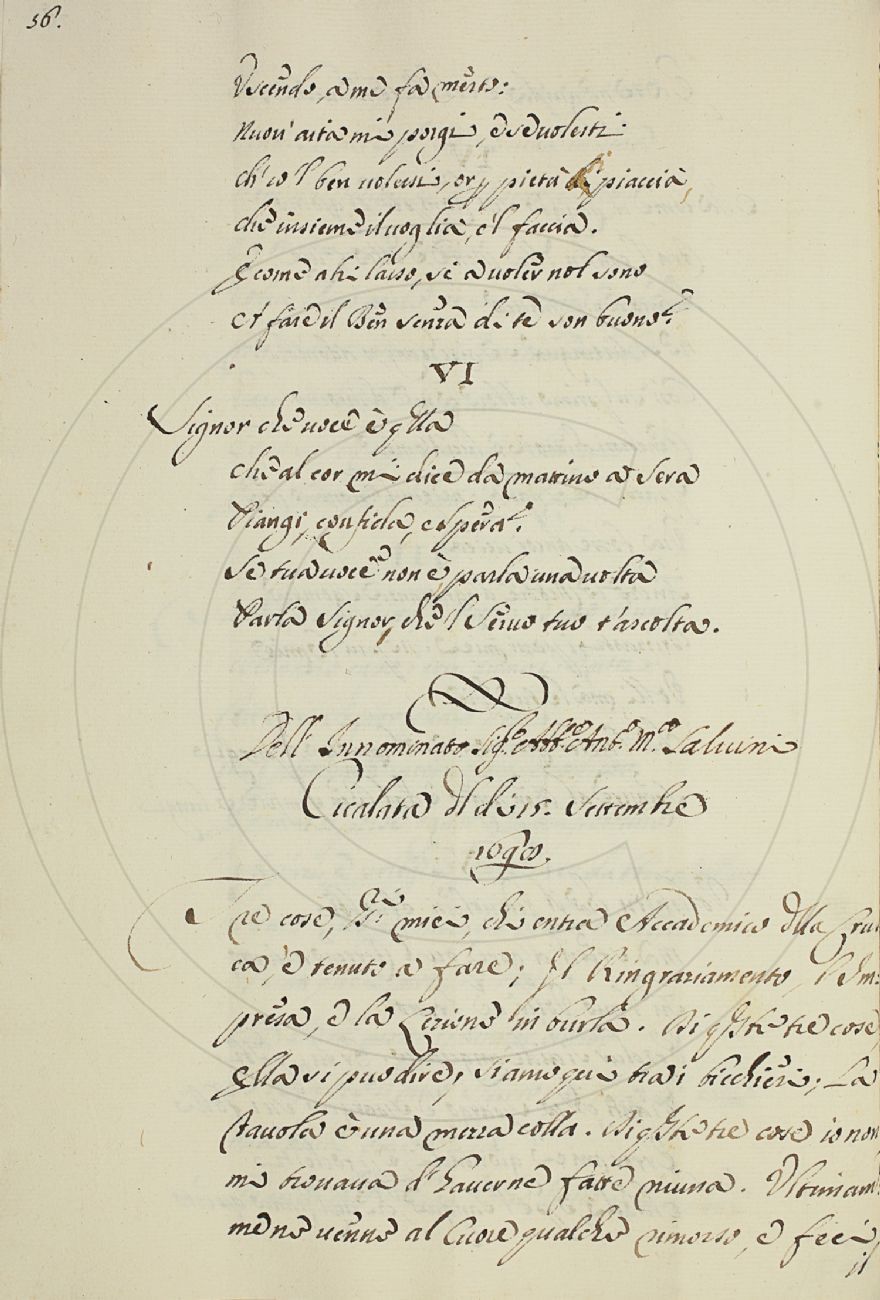 56.
Uscendo, a me fa merto:
Nuov' aita mi porgi, e se volesti
ch' io 'l ben volessi, or p pietà ti piaccia,
che insieme il voglia, e 'l faccia.
E come ahi lasso, se a voler nol sono
et fare il Ben senza di te son buono?
VI
Signor che voce è qlla
che al cor mi dice da mattino a sera
Piangi, confida, e spera?
Se tua voce non è, parla una volta
Parla Signor, che 'l Servo tuo t'ascolta.
Dell' Innominato Sig.e Abb.e Ant.o M.a Salvini
Cicalata dl di 15. Settembre
Tre cose, SS.ri miei, chi entra Accademico dlla Cru
ca, è tenuto a fare; Il Ringraziamento, l'Im
presa, e la Lezione in burla. Di qste tre cose,
qlla si puo dire, siamo qui tra i bicchieri; La
Tavola è una mezza colla. Di qste tre cose io non
mi trovava d' haverne fatte niuna. Ultimam
mene venne al Cuore qualche rimorso, e feci
il